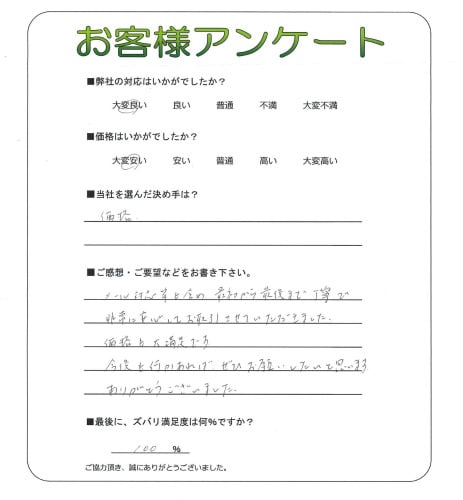 お客様アンケート
■弊社の対応はいかがでしたか？
大変良い 良い 普通 不満 大変不満
■価格はいかがでしたか？
大変安い 安い 普通 高い 大変高い
■当社を選んだ決め手は？
価格
■ご感想・ご要望などをお書き下さい。
メール対応等も含め 最初から最後まで丁寧で
非常に安心してお取引させていただきました.
価格も大満足です
今後も何かあれば、ぜひお願いしたいと思います
ありがとうございました.
■最後に、ズバリ満足度は何%ですか？
100 %
ご協力頂き、誠にありがとうございました。